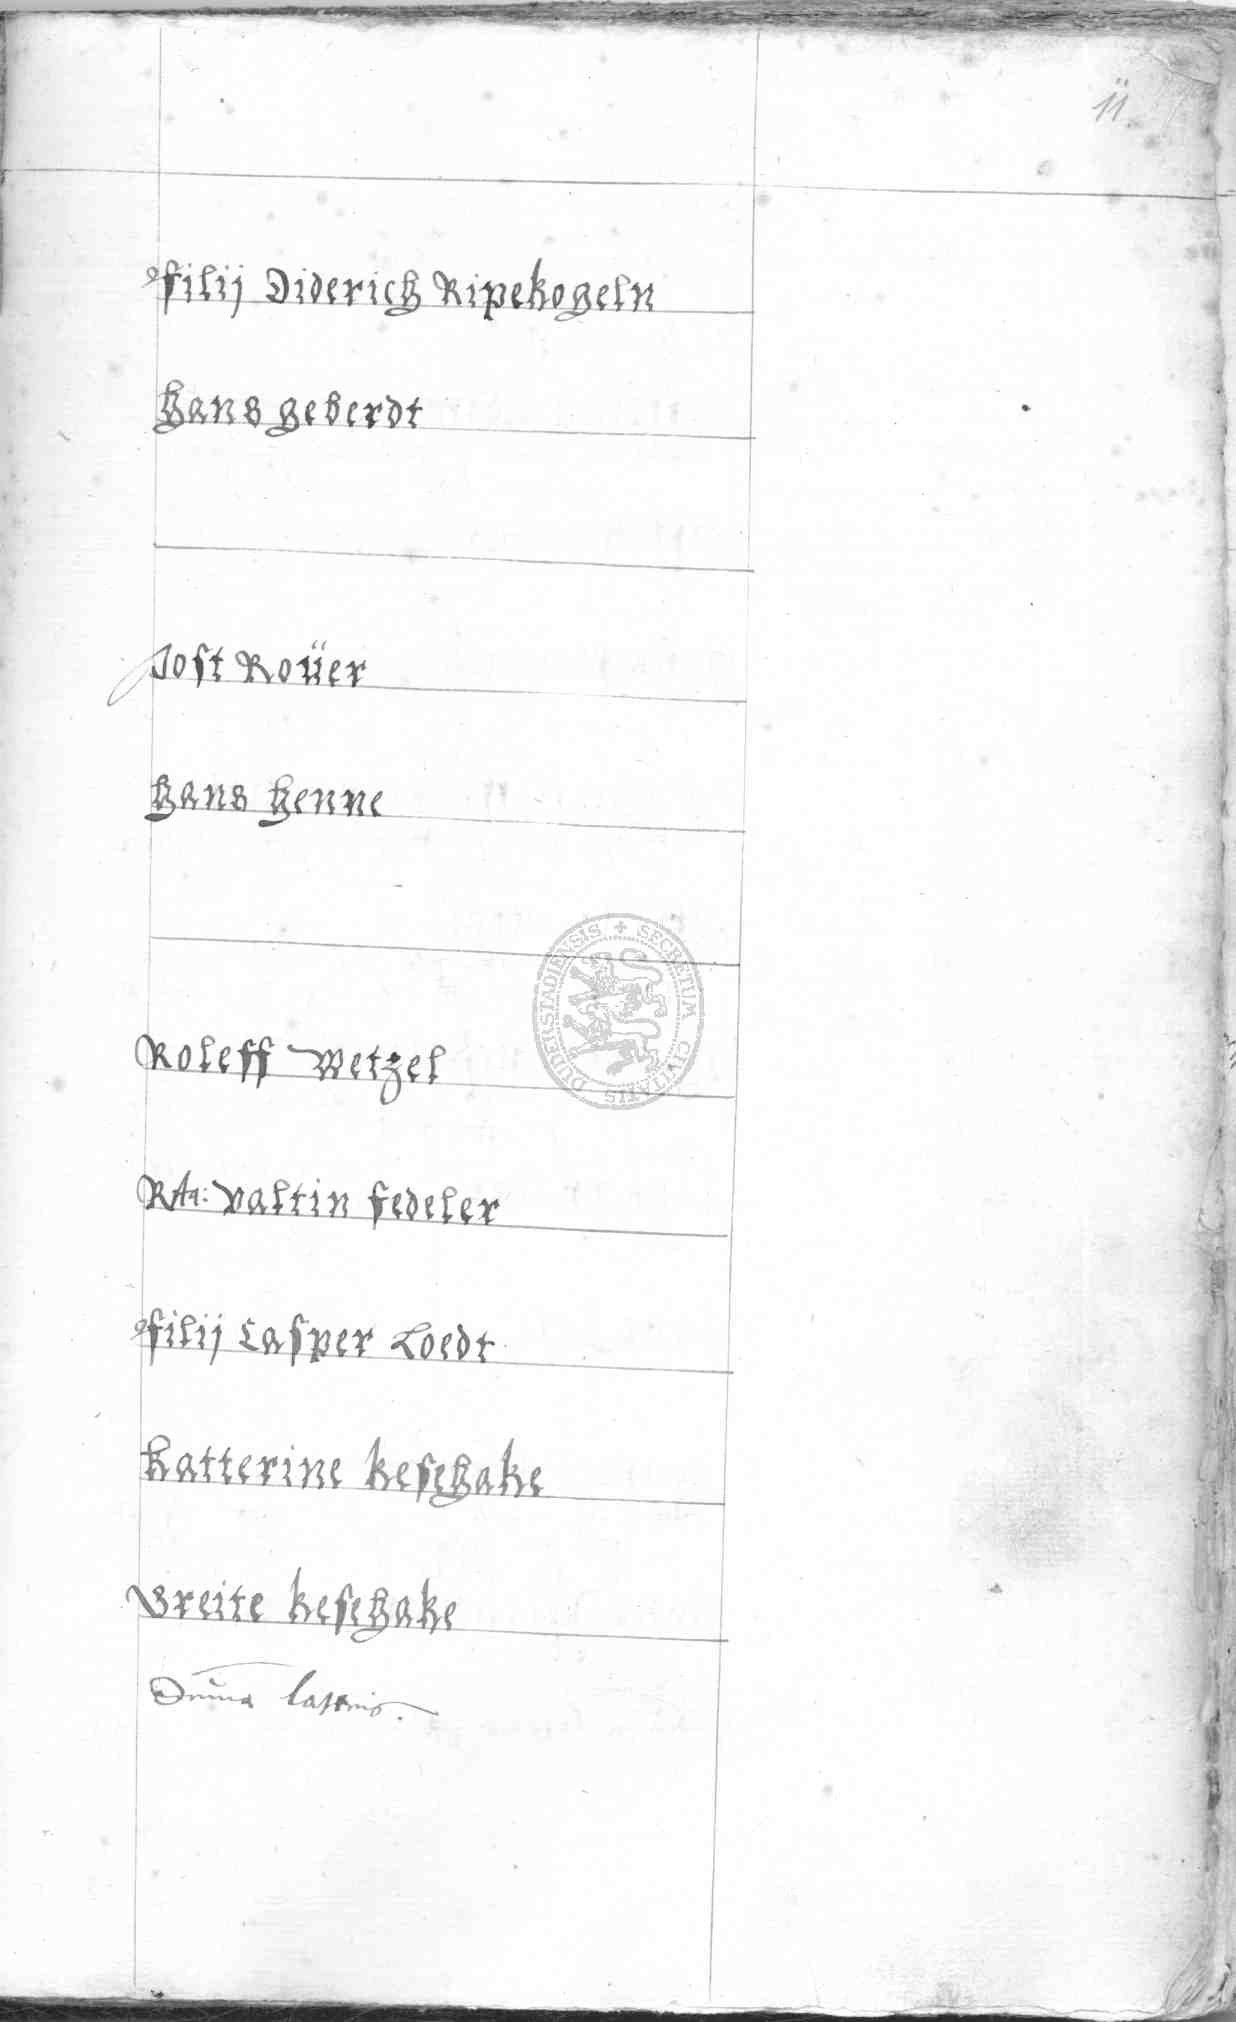 11
filij Diderich Ripekogeln
Hans Geberdt
Jost Roüer
Hans Henne
DUDERSTADIENSIS + SECRETUM CIVITATIS
Roleff Wetzel
Rta: Valtin Fedeler
filij Casper Loedt
Katterine Kesehake
Greite Kesehake